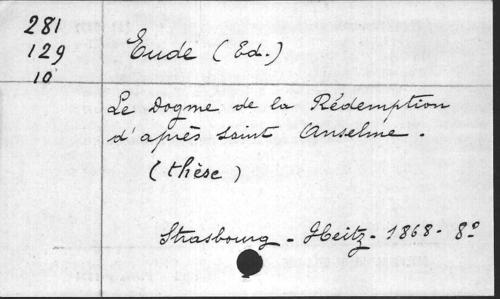 281
129
10
Eude (Ed.)
Le Dogme de la Rédemption
d'après Saint Anselme.
(thèse)
Strasbourg - Heitz - 1868 - 8º